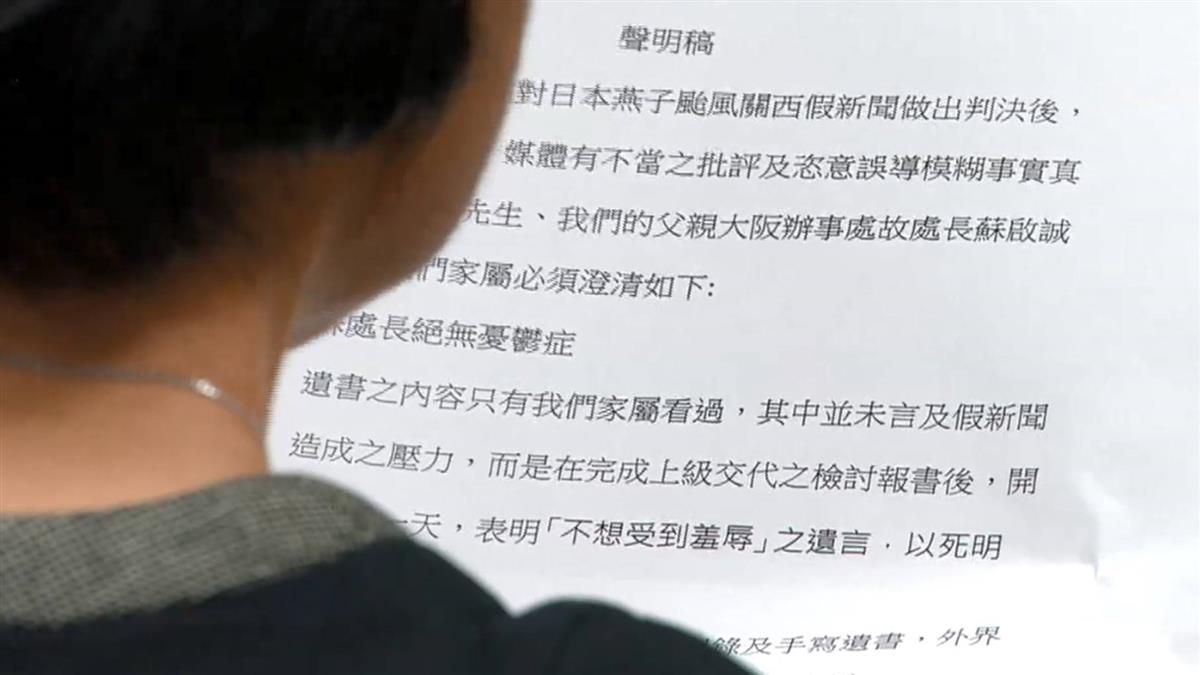 聲明稿
對日本燕子颱風關西假新聞做出判決後，
媒體有不當之批評及恣意誤導模糊事實真
先生、我們的父親大阪辦事處故處長蘇啟誠
們家屬必須澄清如下:
蘇處長絕無憂鬱症
遺書之內容只有我們家屬看過，其中並未言及假新聞
造成之壓力，而是在完成上級交代之檢討報書後，開
一天，表明「不想受到羞辱」之遺言．以死明
錄及手寫遺書，外界